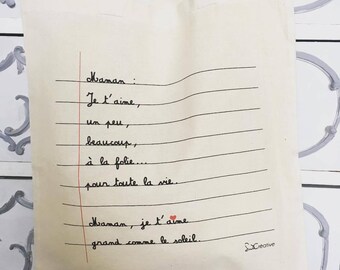 Maman :
Je t'aime,
un peu,
beaucoup,
à la folie...
pour toute la vie..
Maman, je t'aime
grand comme le soleil.
Créative